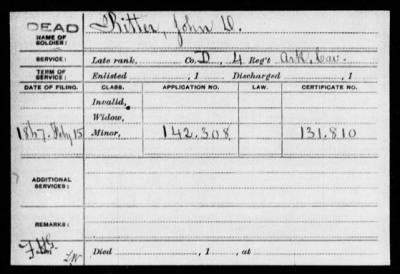 DEAD
NAME OF SOLDIER: Ritter, John D.
SERVICE: Late rank, Co. D, 4 Reg't Ark. Cav.
TERM OF SERVICE: Enlisted , 1 Discharged , 1
DATE OF FILING. CLASS. APPLICATION NO. LAW. CERTIFICATE NO.
Invalid,
Widow,
1867. Feby 15 Minor, 142.308 131.810
ADDITIONAL SERVICES:
REMARKS:
Died , 1 , at